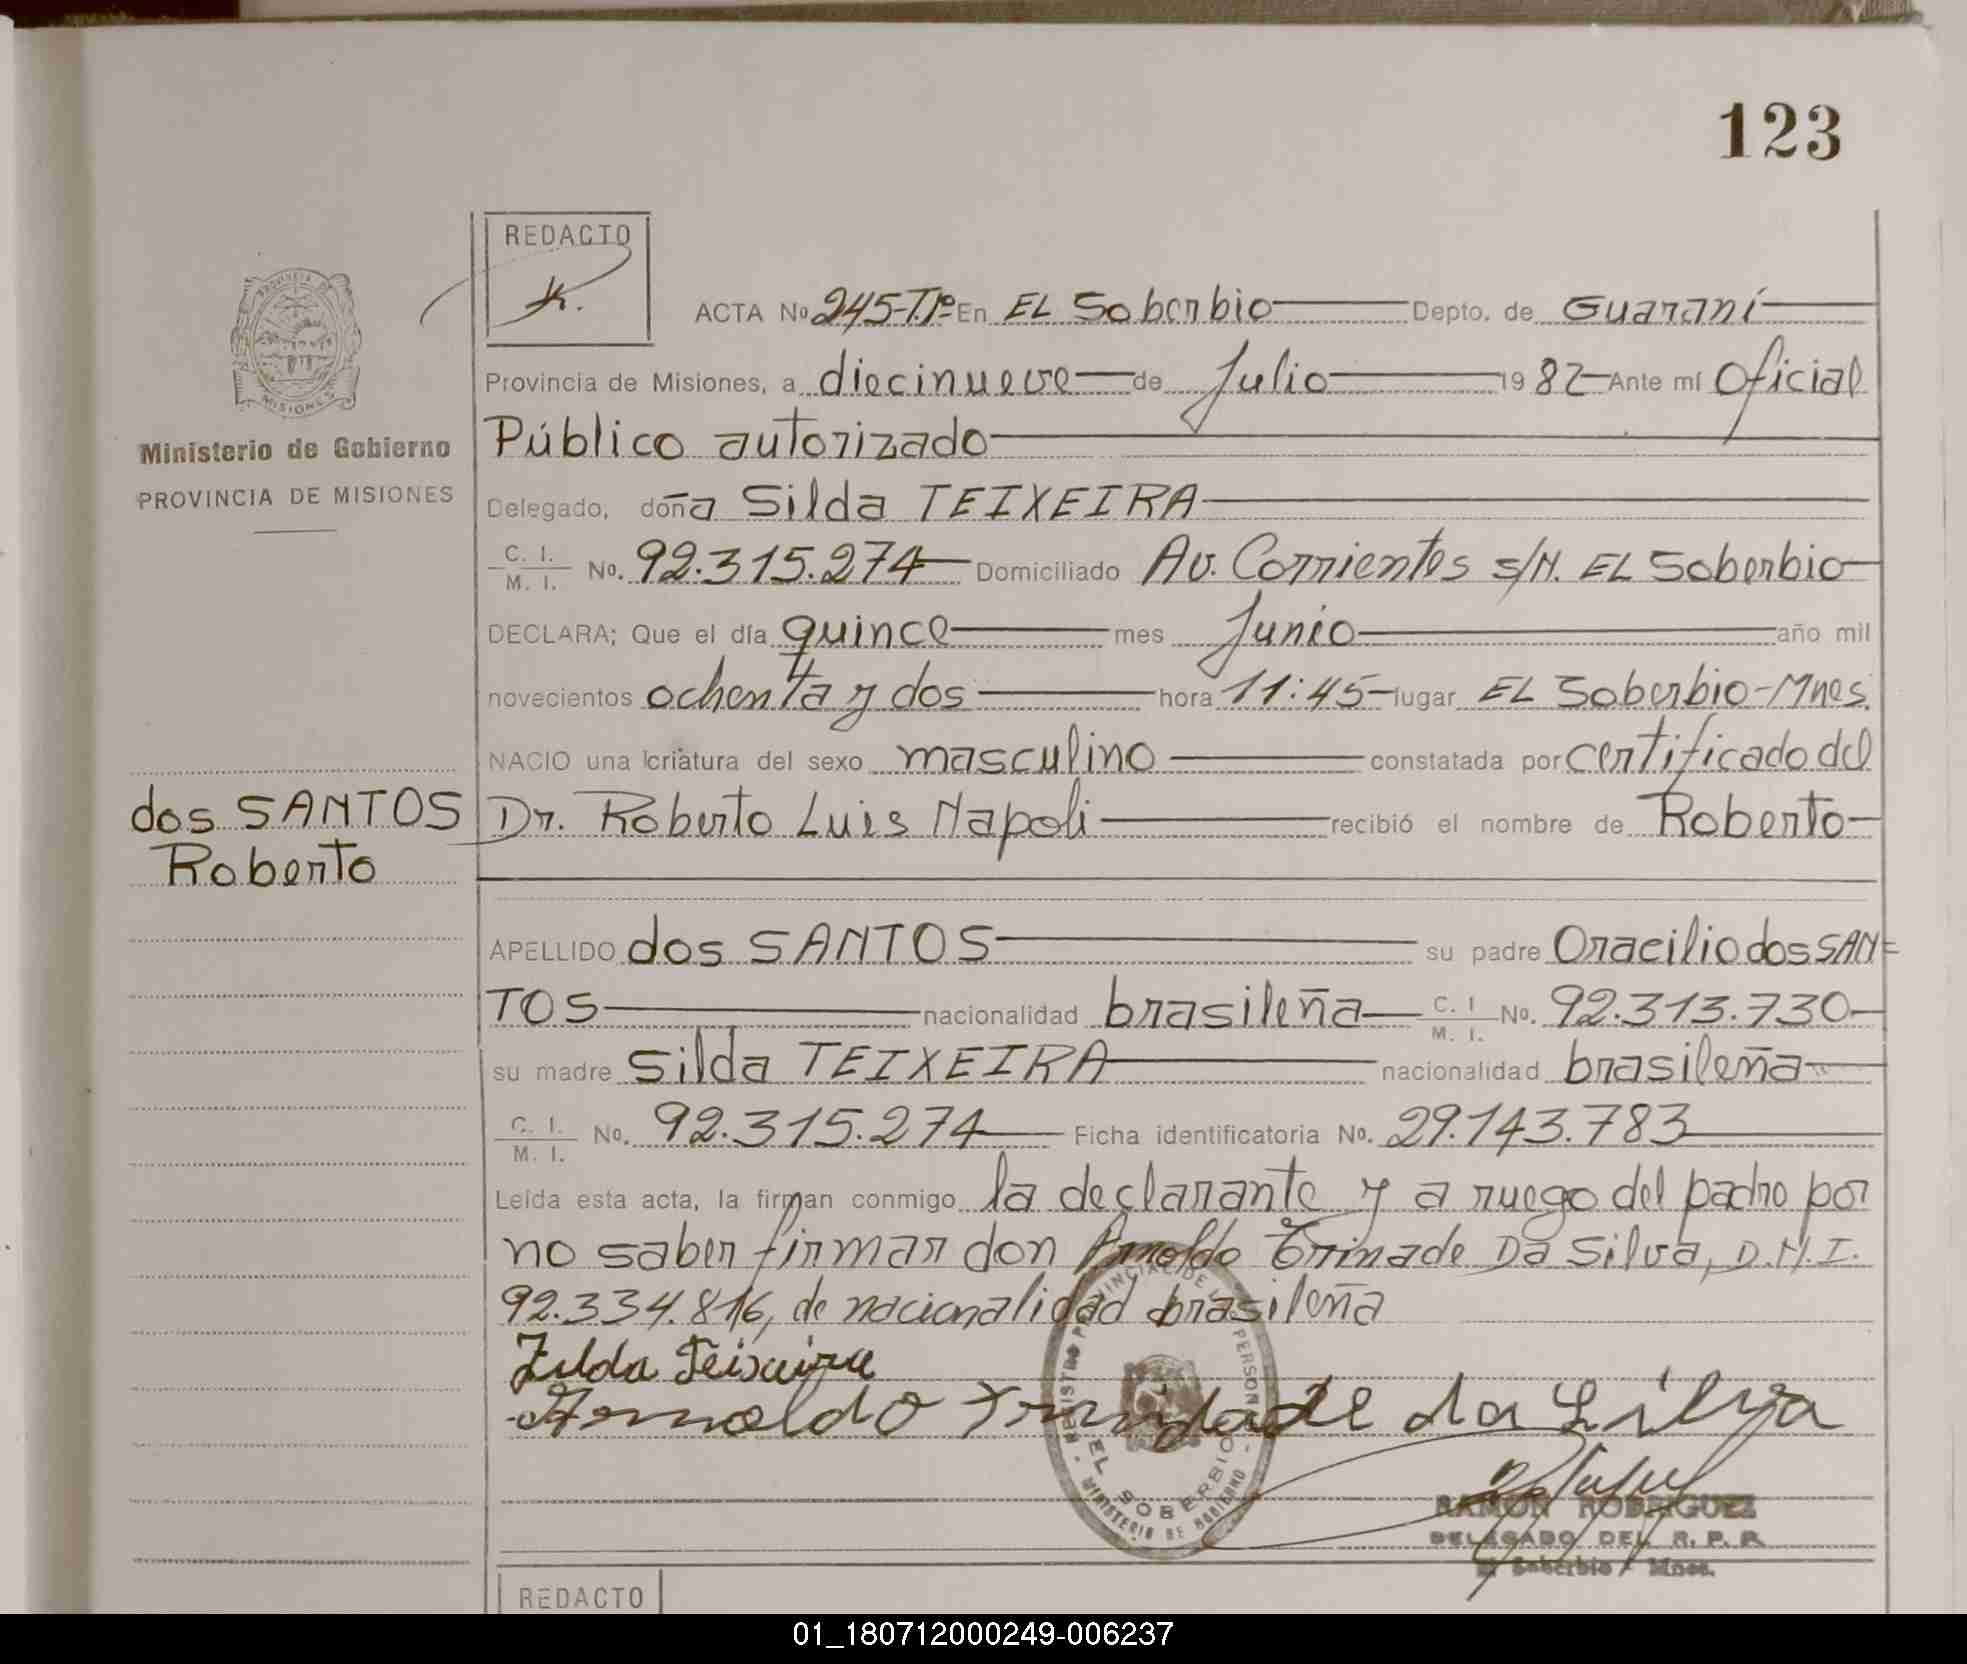 123
REDACTO
ACTA No 245-Tº En EL Soberbio Depto. de Guaraní
Provincia de Misiones, a diecinueve de Julio 1982 Ante mí Oficial
Público autorizado
Ministerio de Gobierno
PROVINCIA DE MISIONES
Delegado, doña Silda TEIXEIRA
C. I. M. I. No. 92.315.274 Domiciliado Av. Corrientes s/N. EL Soberbio
DECLARA; Que el día quince mes Junio año mil
novecientos ochenta y dos hora 11:45 lugar EL Soberbio-Mnes.
NACIO una criatura del sexo masculino constatada por certificado del
Dr. Roberto Luis Napoli recibió el nombre de Roberto
dos SANTOS
Roberto
APELLIDO dos SANTOS su padre Oracilio dos SAN=
TOS nacionalidad brasileña C. I M. I. No. 92.313.730
su madre Silda TEIXEIRA nacionalidad brasileña
C. I. M. I. No. 92.315.274 Ficha identificatoria No. 29.143.783
Leída esta acta, la firman conmigo la declarante y a ruego del padre por
no saber firmar don Arnoldo Trinade Da Silva, D.N.I.
92.334.816, de nacionalidad brasileña
Zilda Teixeira
Arnoldo Trindade da Silva
REGISTRO PROVINCIAL DE LAS PERSONAS
EL SOBERBIO
MINISTERIO DE GOBIERNO
RAMON RODRIGUEZ
DELEGADO DEL R. P. P.
El Soberbio - Mnes.
REDACTO
01_180712000249-006237